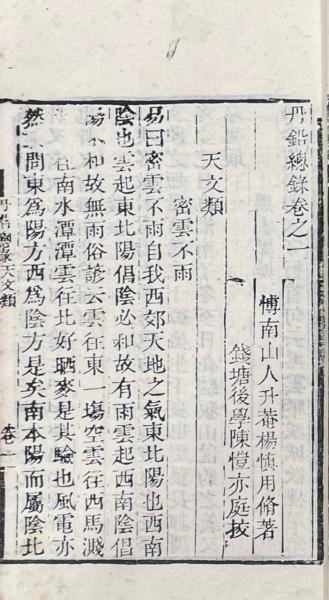 丹鉛總錄卷之一
博南山人升菴楊慎用脩著
錢塘後學陳愷亦庭校
天文類
密雲不雨
易曰密雲不雨自我西郊天地之氣東北陽也西南
陰也雲起東北陽倡陰必和故有雨雲起西南陰倡
陽不和故無雨俗諺云雲往東一塲空雲往西馬濺
往南水潭潭雲往北好晒麥是其驗也風電亦
然 問東爲陽方西爲陰方是矣南本陽而屬陰北
天文類
卷一